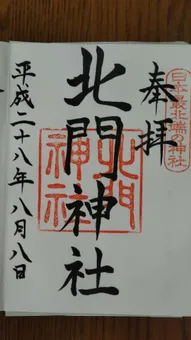 日本最北端の神社
奉拝
北門神社
北門神社
平成二十八年八月八日